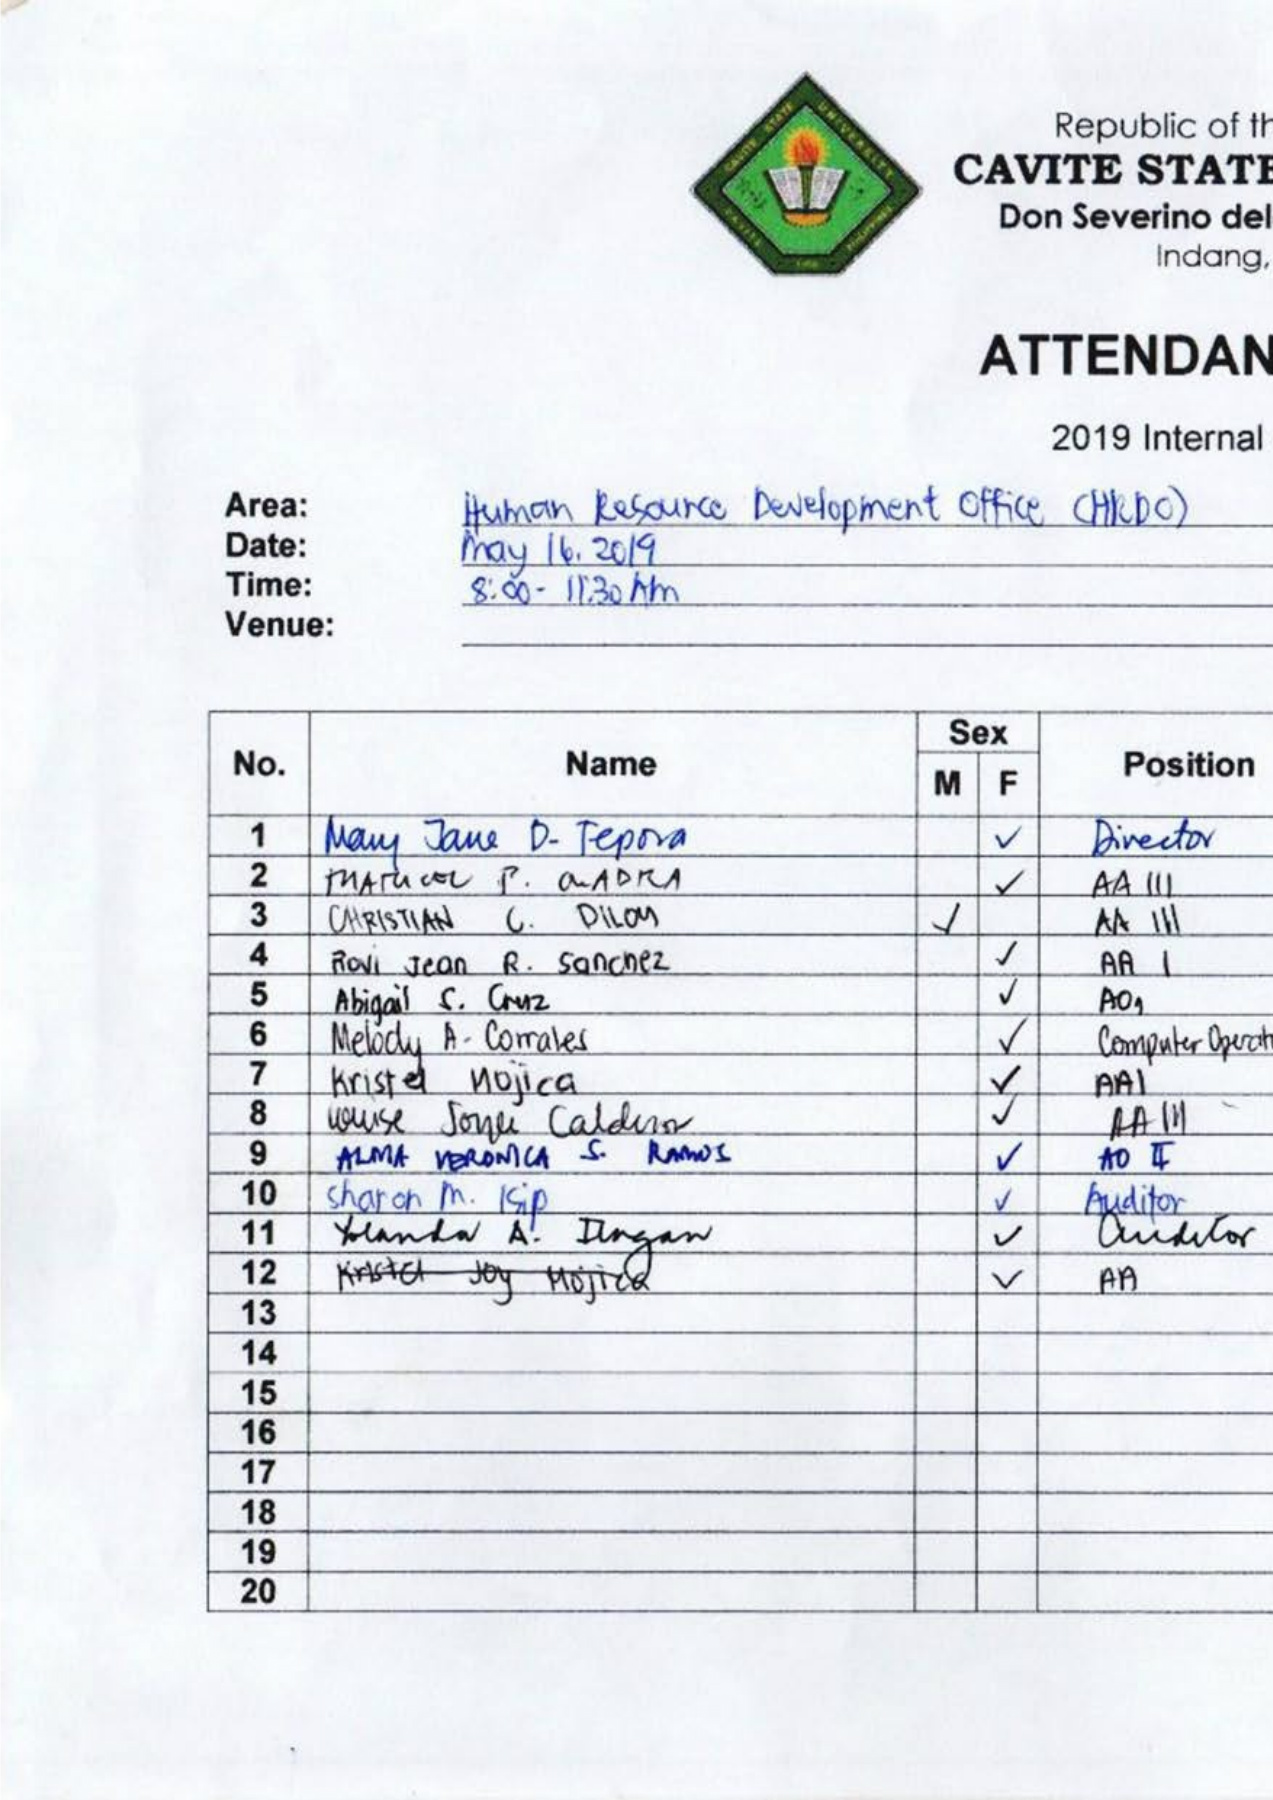 CAVITE STATE UNIVERSITY
Republic of th
CAVITE STATE
Don Severino del
Indang,
ATTENDAN
2019 Internal
Area: Human Resource Development Office (HRDO)
Date: May 16, 2019
Time: 8:00 - 11:30 Am
Venue:
No. Name Sex Position
M F
1 Mary Jane D. Tepora ✓ Director
2 P. ✓ AA III
3 CHRISTIAN C. ✓ AA III
4 Rovi Jean R. Sanchez ✓ AA I
5 Abigail S. Cruz ✓ AO1
6 Melody A. Corrales ✓ Computer Operat
7 Kristel Mojica ✓ AA1
8 Louise ✓ AA III
9 ALMA VERONICA S. RAMOS ✓ AO II
10 Sharon M. Isip ✓ Auditor
11 Yolanda A. Ilagan ✓ Auditor
12 Kristel Joy Mojica ✓ AA
13
14
15
16
17
18
19
20